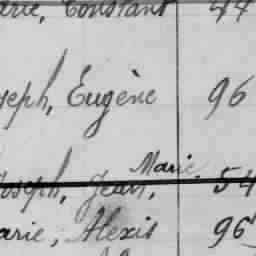 arie, Constant 44
seph, Eugène 96
Marie
Joseph, Jean, 54
arie, Alexis 96